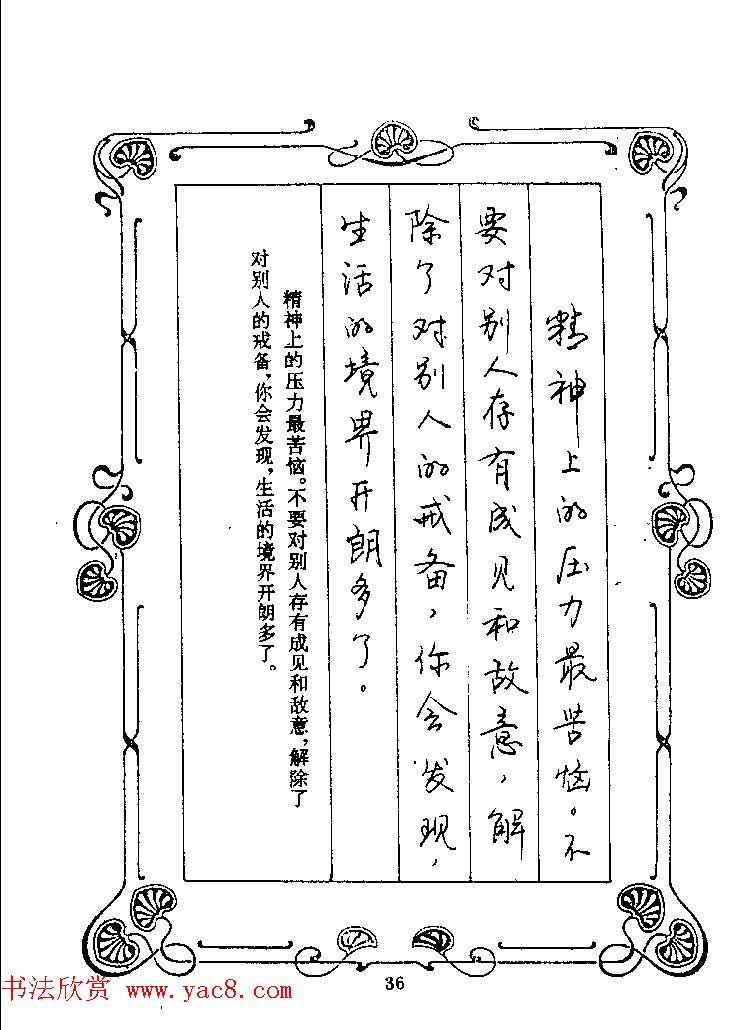 精神上的压力最苦恼。不
要对别人存有成见和敌意，解
除了对别人的戒备，你会发现，
生活的境界开朗多了。
精神上的压力最苦恼。不要对别人存有成见和敌意，解除了
对别人的戒备，你会发现，生活的境界开朗多了。
36
书法欣赏 www.yac8.com